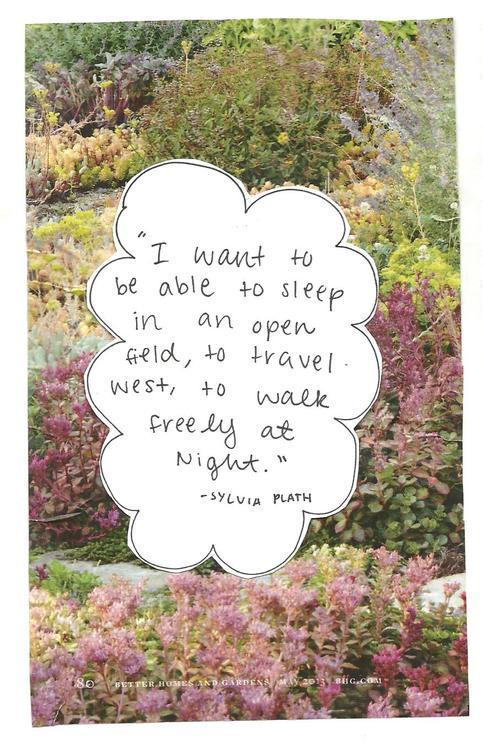 "I want to
be able to sleep
in an open
field, to travel
west, to walk
freely at
Night."
-SYLVIA PLATH
80 BETTER HOMES AND GARDENS MAY 2013 BHG.COM